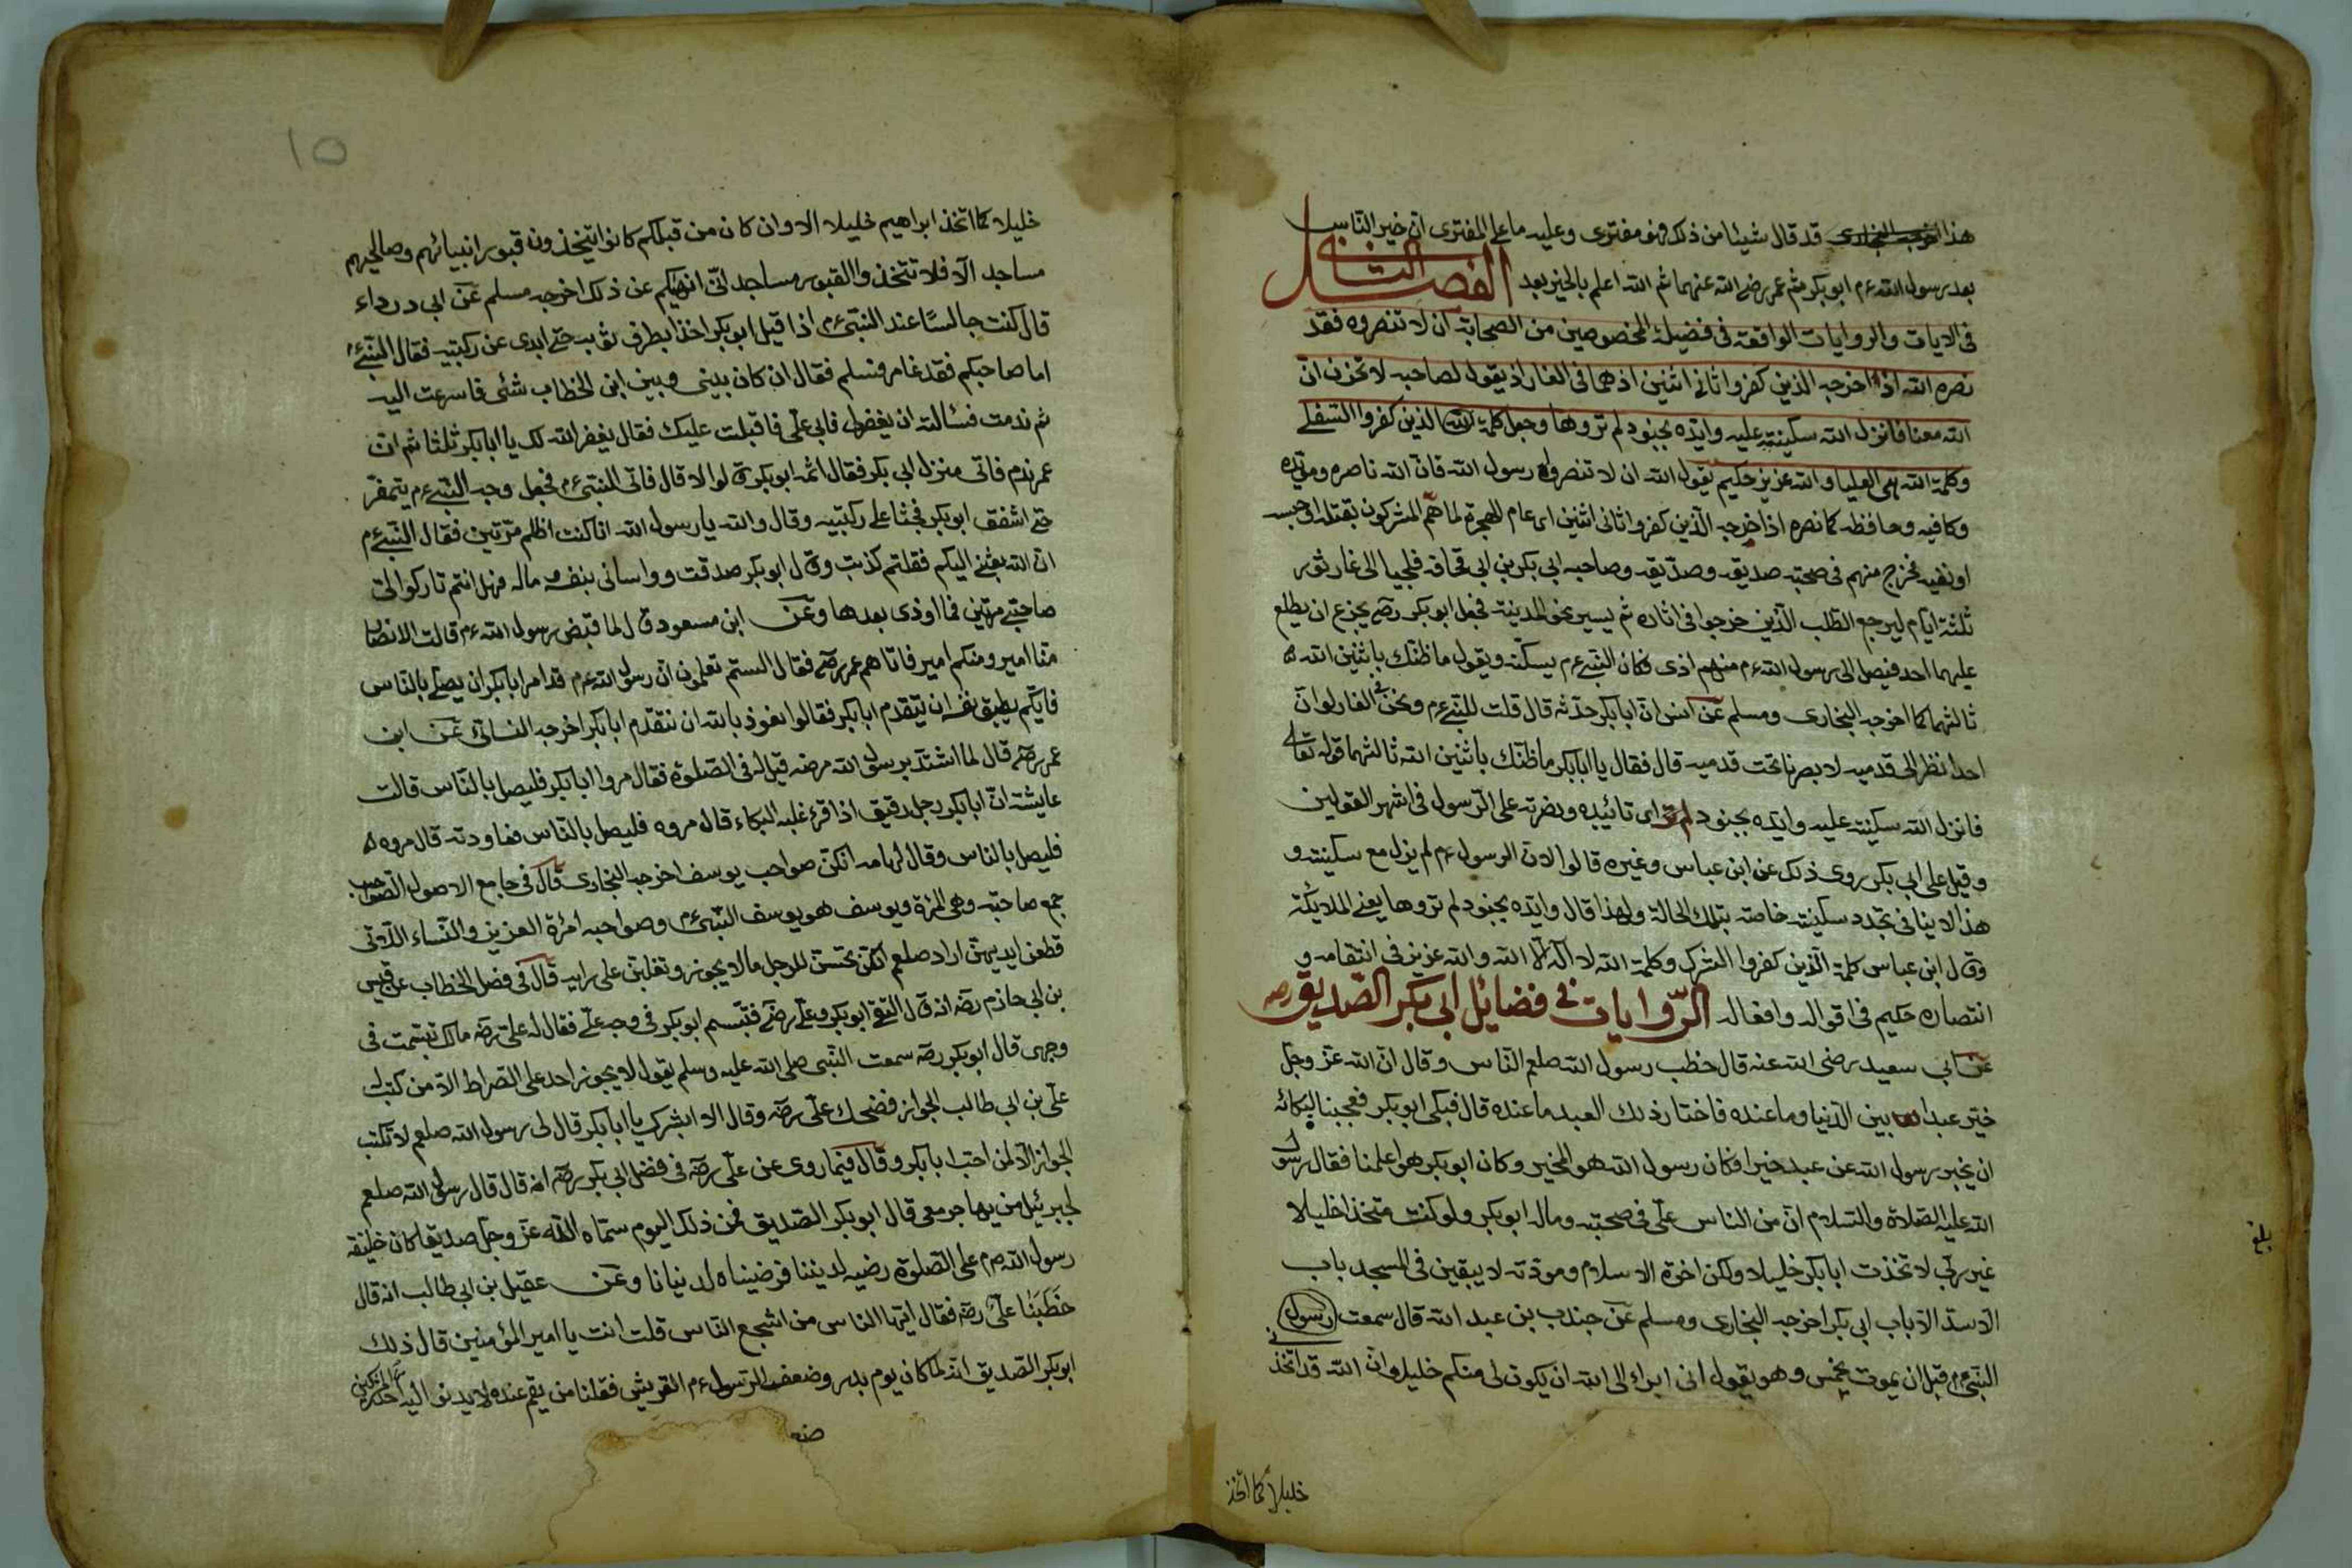 هذا قد قال شيئا من ذلك فهو مفترى وعليه ما على المفترى ان خير الناس
بعد رسول الله ءم ابو بكر ثم عمر رضى الله عنهما ثم الله اعلم بالخير بعد الفصل الثانى
فى الايات والروايات الواقعة فى فضيلة المخصوصين من الصحابة ان لا تنصروه فقد
نصره الله اذ اخرجه الذين كفروا ثانى اثنين اذ هما فى الغار اذ يقول لصاحبه لا تحزن ان
الله معنا فانزل الله سكينته عليه وايده بجنود لم تروها وجعل كلمة الذين كفروا السفلى
وكلمة الله هى العليا والله عزيز حكيم يقول الله ان لا تنصروا رسول الله فان الله ناصره ومؤيده
وكافيه وحافظه كما نصره اذ اخرجه الذين كفروا ثانى اثنين اى عام الهجرة لما هم المشركون بقتله او حبسه
او نفيه فخرج منهم فى صحبته صديقه وصديقه وصاحبه ابى بكر بن ابى قحافة فلجيا الى غار ثور
ثلثة ايام ليرجع الطلب الذين خرجوا فى اثاره ثم يسير نحو المدينة فجعل ابو بكر رضى يجزع ان يطلع
عليهما احد فيصل الى رسول الله ءم منهم اذى فكان النبى ءم يسكنه ويقول ما ظنك باثنين الله
ثالثهما كما اخرجه البخارى ومسلم عن انس ان ابا بكر حدثه قال قلت للنبى ءم ونحن فى الغار لو ان
احدا نظر الى قدميه لابصرنا تحت قدميه قال فقال يا ابا بكر ما ظنك باثنين الله ثالثهما قوله تعالى
فانزل الله سكينته عليه وايده بجنود لم تر اى تائيده ونصرته على الرسول فى اشهر القولين
وقيل على ابى بكر روى ذلك عن ابن عباس وغيره قالوا لان الرسول ءم لم يزل مع سكينته و
هذا لا ينافى تجدد سكينته خاصة بتلك الحالة ولهذا قال وايده بجنود لم تروها يعنى الملائكة
وقال ابن عباس كلمة الذين كفروا الشرك وكلمة الله لا اله الا الله والله عزيز فى انتقامه و
انتصاره حكيم فى اقواله وافعاله الروايات فى فضائل ابى بكر الصديق رضه
عن ابى سعيد رضى الله عنه قال خطب رسول الله صلعم الناس وقال ان الله عز وجل
خير عبدا بين الدنيا وما عنده فاختار ذلك العبد ما عنده قال فبكى ابو بكر فعجبنا لبكائه
ان يخبر رسول الله عن عبد خيرا فكان رسول الله هو المخير وكان ابو بكر هو اعلمنا فقال رسول
الله عليه الصلاة والسلام ان من الناس على فى صحبته وماله ابو بكر ولو كنت متخذا خليلا
غير ربى لاتخذت ابا بكر خليلا ولكن اخوة الاسلام ومودته لا يبقين فى المسجد باب
الا سد الا باب ابى بكر اخرجه البخارى ومسلم عن جندب بن عبد الله قال سمعت رسول
النبى ءم قبل ان يموت بخمس وهو يقول انى ابراء الى الله ان يكون لى منكم خليل وان الله قد اتخذ
خليلا كما اتخذ
بلغ
١٥
خليلا كما اتخذ ابراهيم خليلا الا وان كان من قبلكم كانوا يتخذون قبور انبيائهم وصالحيهم
مساجد الا فلا تتخذوا القبور مساجد انى انهيكم عن ذلك اخرجه مسلم عن ابى درداء
قال كنت جالسا عند النبى ءم اذا قبل ابو بكر اخذا بطرف ثوبه حتى ابدى عن ركبتيه فقال النبى ءم
اما صاحبكم فقد غامر فسلم فقال ان كان بينى وبين ابن الخطاب شئى فاسرعت اليه
ثم ندمت فسالته ان يغفرلى فابى على فاقبلت عليك فقال يغفر الله لك يا ابا بكر ثلثا ثم ان
عمر ندم فاتى منزل ابى بكر فقال اثمه ابو بكر قالوا لا قال فاتى النبى ءم فجعل وجه النبى ءم يتمعر
حتى اشفق ابو بكر فجثا على ركبتيه وقال والله يا رسول الله انا كنت اظلم مرتين فقال النبى ءم
ان الله بعثنى اليكم فقلتم كذبت وقال ابو بكر صدقت وواسانى بنفسه وماله فهل انتم تاركوا لى
صاحبى مرتين فما اوذى بعدها وعن ابن مسعود قال لما قبض رسول الله ءم قالت الانصار
منا امير ومنكم امير فاتاهم عمر رضى فقال الستم تعلمون ان رسول الله ءم قد امر ابا بكر ان يصلى بالناس
فايكم يطيق نفسه ان يتقدم ابا بكر فقالوا نعوذ بالله ان نتقدم ابا بكر اخرجه النسائى عن ابن
عمر رضى قال لما اشتد برسول الله مرضه قيل له فى الصلوة فقال مروا ابا بكر فليصل بالناس قالت
عايشة ان ابا بكر رجل رقيق اذا قرء غلبه البكاء قال مروه فليصل بالناس فعاودته قال مروه
فليصل بالناس وقال لها مه انكن صواحب يوسف اخرجه البخارى قال فى جامع الاصول الصواحب
جمع صاحبة وهى المرة ويوسف هو يوسف النبى ءم وصواحبه امرئة العزيز والنساء اللاتى
قطعن ايديهن اراد صلعم انكن تحسن للرجل ما لا يجوز وتغلبن على رايه قال فى فصل الخطاب عن قيس
بن ابى حازم رضه انه قال التقى ابو بكر وعلى رضى فتبسم ابو بكر فى وجه على فقال له على رضه مالك تبسمت فى
وجهى قال ابو بكر رضه سمعت النبى صلى الله عليه وسلم يقول لا يجوز احد على الصراط الا من كتب له
على بن ابى طالب الجواز فضحك على رضه وقال الا ابشرك يا ابا بكر قال لى رسول الله صلعم لا تكتب
الجواز الا لمن احب ابا بكر وقال فيما روى عن على رضه فى فضل ابى بكر رضه انه قال قال رسول الله صلعم
لجبرئيل من يهاجر معى قال ابو بكر الصديق فمن ذلك اليوم سماه الله عز وجل صديقا كان خليفة
رسول الله ءم على الصلوة رضيه لديننا فرضيناه لدنيانا وعن عقيل بن ابى طالب انه قال
خطبنا على رضه فقال ايها الناس من اشجع الناس قلت انت يا امير المؤمنين قال ذلك
ابو بكر الصديق انه لما كان يوم بدر وضعف الرسول ءم القريش فقلنا من يقم عنده لا يدنو اليه احد